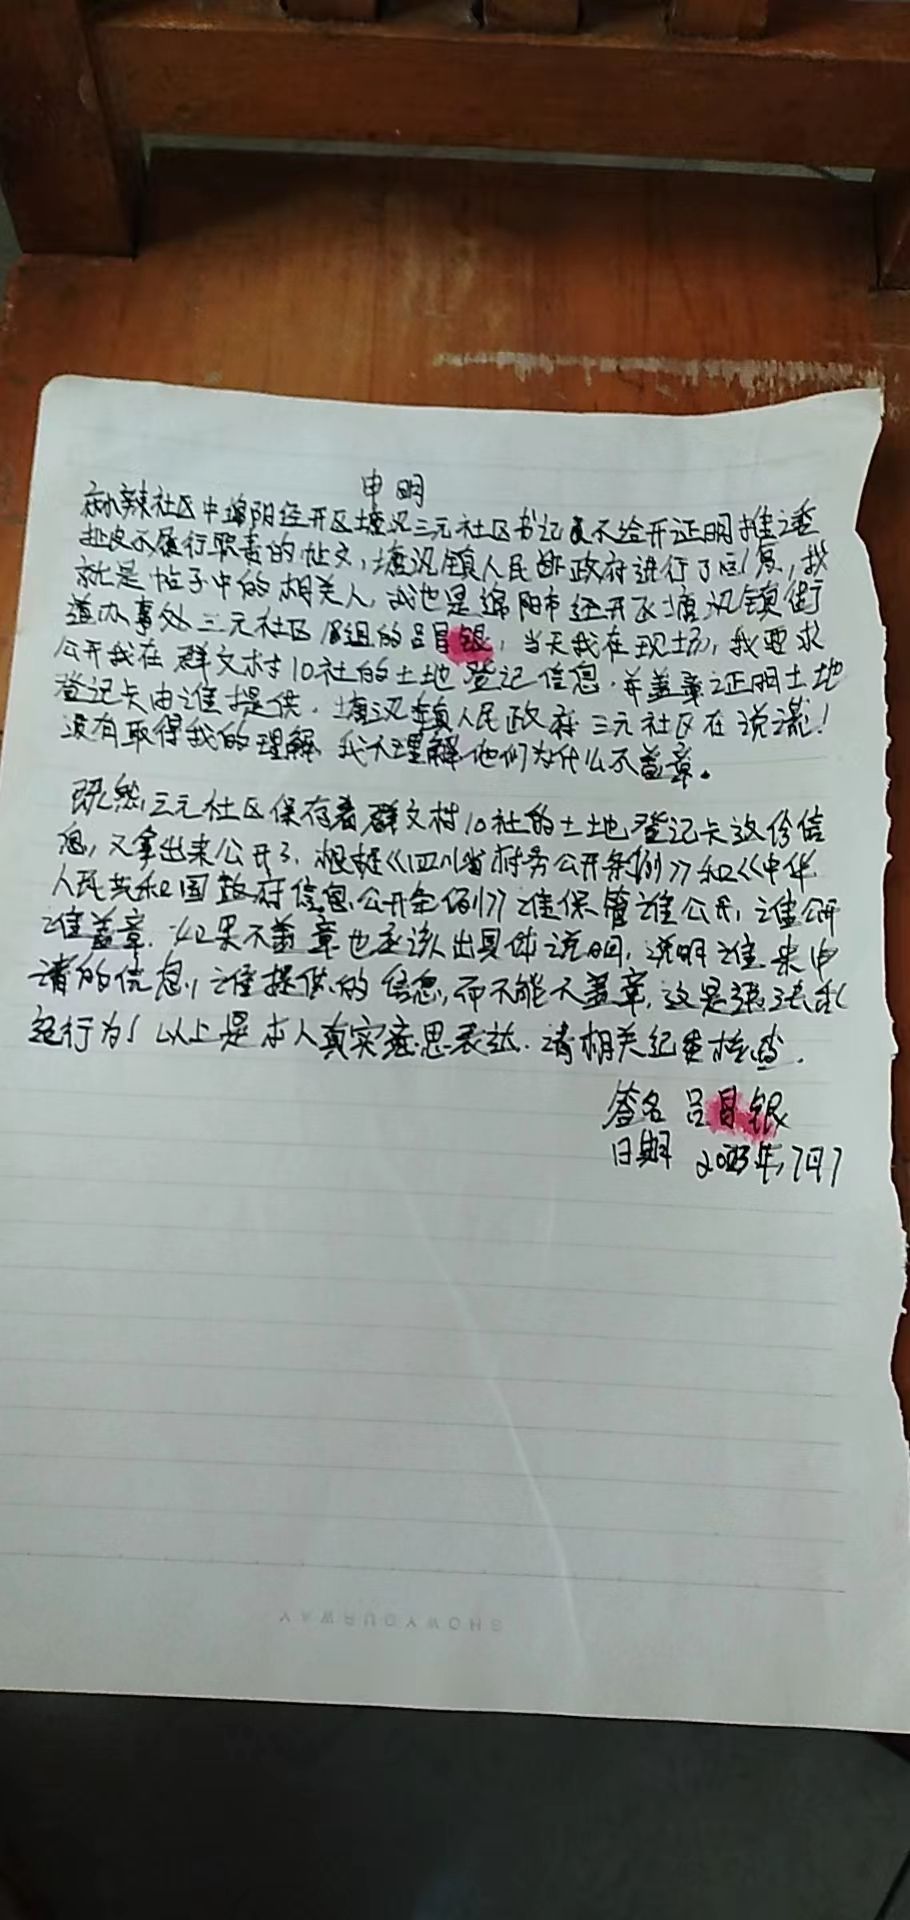 申明
麻辣社区中绵阳经开区塘汛三元社区书记不给开证明推诿
扯皮不履行职责的帖文,塘汛镇人民政府进行了回复,我
就是帖子中的相关人,我也是绵阳市经开区塘汛镇街
道办事处三元社区8组的吕昌银,当天我在现场,我要求
公开我在群文村10社的土地登记信息.并盖章证明土地
登记卡由谁提供.塘汛镇人民政府三元社区在说谎!
没有取得我的理解 我不理解他们为什么不盖章.
既然三元社区保存着群文村10社的土地登记卡这份信
息,又拿出来公开了.根据《四川省村务公开条例》和《中华
人民共和国政府信息公开条例》谁保管谁公开,谁公开
谁盖章.如果不盖章也应该出具体说明,说明谁来申
请的信息,谁提供的信息,而不能不盖章,这是
纪行为!以上是本人真实意思表达.请相关纪委检查.
签名 吕昌银
日期 2023年,7月7
SHOWYOURWAY